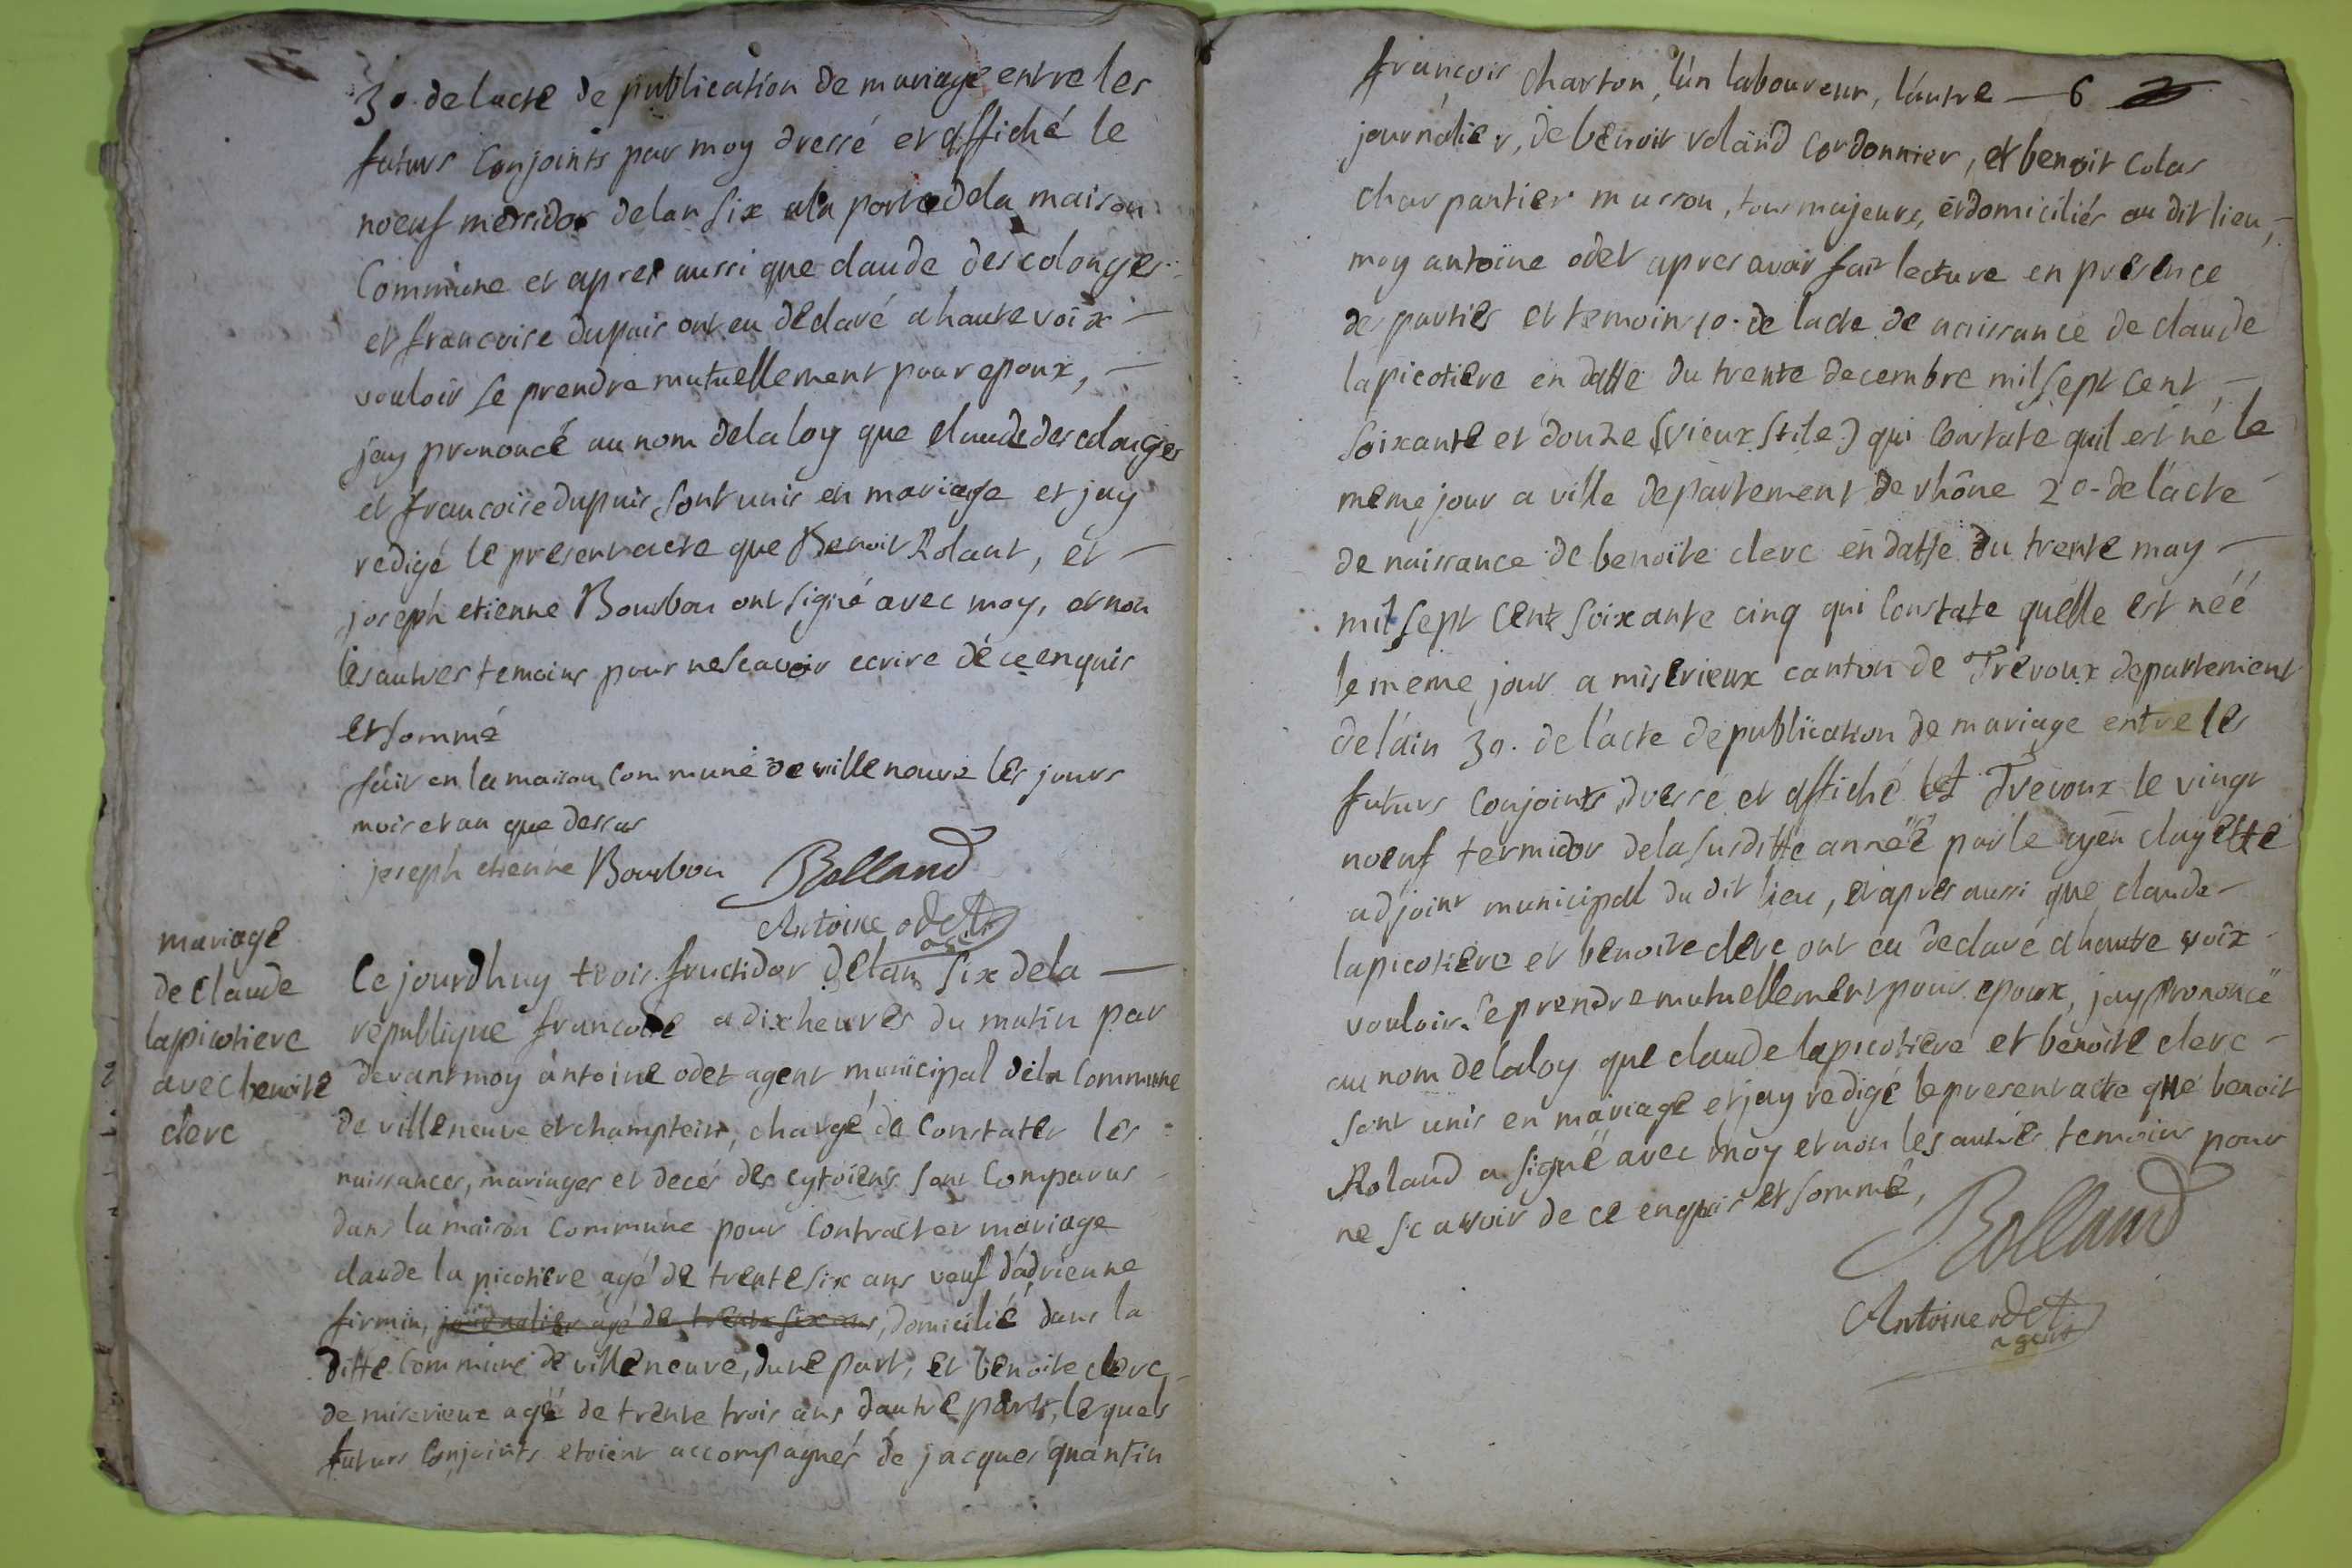 3o. de lacte de publication de mariage entre les
futurs conjoints par moy dressé et affiché le
noeuf messidor de lan six a la porte de la maison
commune et apres aussi que claude descolonges
et francoise dupuis ont eu déclaré a haute voix
vouloir se prendre mutuellement pour epoux,
jay prononcé au nom de la loy que claude descolonges
et francoise dupuis, sont unis en mariage et jay
redigé le present acte que Benoit Rolant, et
joseph etienne Bourbon ont signé avec moy, et non
les autres temoins pour ne scavoir ecrire de ce enquis
et sommé
fait en la maison commune de villeneuve les jours
mois et an que dessus
joseph etienne Bourbon Rolland
Antoine odet
agent
mariage
de claude
lapicotiere
avec benoite
clerc
Ce jourdhuy trois fructidor de lan six de la
republique francoise a dix heures du matin par
devant moy antoine odet agent municipal de la commune
de villeneuve et champtein, chargé de constater les
naissances, mariages et decés des cytoiens sont comparus
dans la maison commune pour contracter mariage
claude la picotiere agé de trente six ans veuf d'adrienne
firmin, journalier agé de trente six ans, domicilié dans la
ditte commune de villeneuve, dune part, et benoite clerc
de miserieux agé de trente trois ans dautre part, lesquels
futurs conjoints etoient accompagnés de jacques quantin
françois charton, l'un laboureur, l'autre — 6
journalier, de benoit roland cordonnier, et benoit colas
charpantier masson, tous majeurs, et domiciliés au dit lieu,
moy antoine odet apres avoir fait lecture en presence
de parties et temoins 1o. de lacte de naissance de claude
lapicotiere en datte du trente decembre mil sept cent
soixante et douze (vieux stile) qui constate quil est né le
meme jour a ville departement de rhône 2o. de l'acte
de naissance de benoite clerc en datte du trente may
mil sept cent soixante cinq qui constate quelle est néé
le meme jour a miserieux canton de Trevoux departement
de l'ain 3o. de l'acte de publication de mariage entre les
futurs conjoints, dressé et affiché Trevoux le vingt
noeuf termidor de la susditte année par le cyen clayette
adjoint municipal du dit lieu, et apres aussi que claude
lapicotiere et benoite clerc ont eu declaré a haute voix
vouloir se prendre mutuellement pour epoux, jay prononcé
au nom de la loy que claude lapicotiere et benoite clerc
sont unis en mariage et jay redigé le present acte que benoit
Roland a signé avec moy et non les autres temoins pour
ne scavoir de ce enquis et sommé,
Rolland
Antoine odet
agent